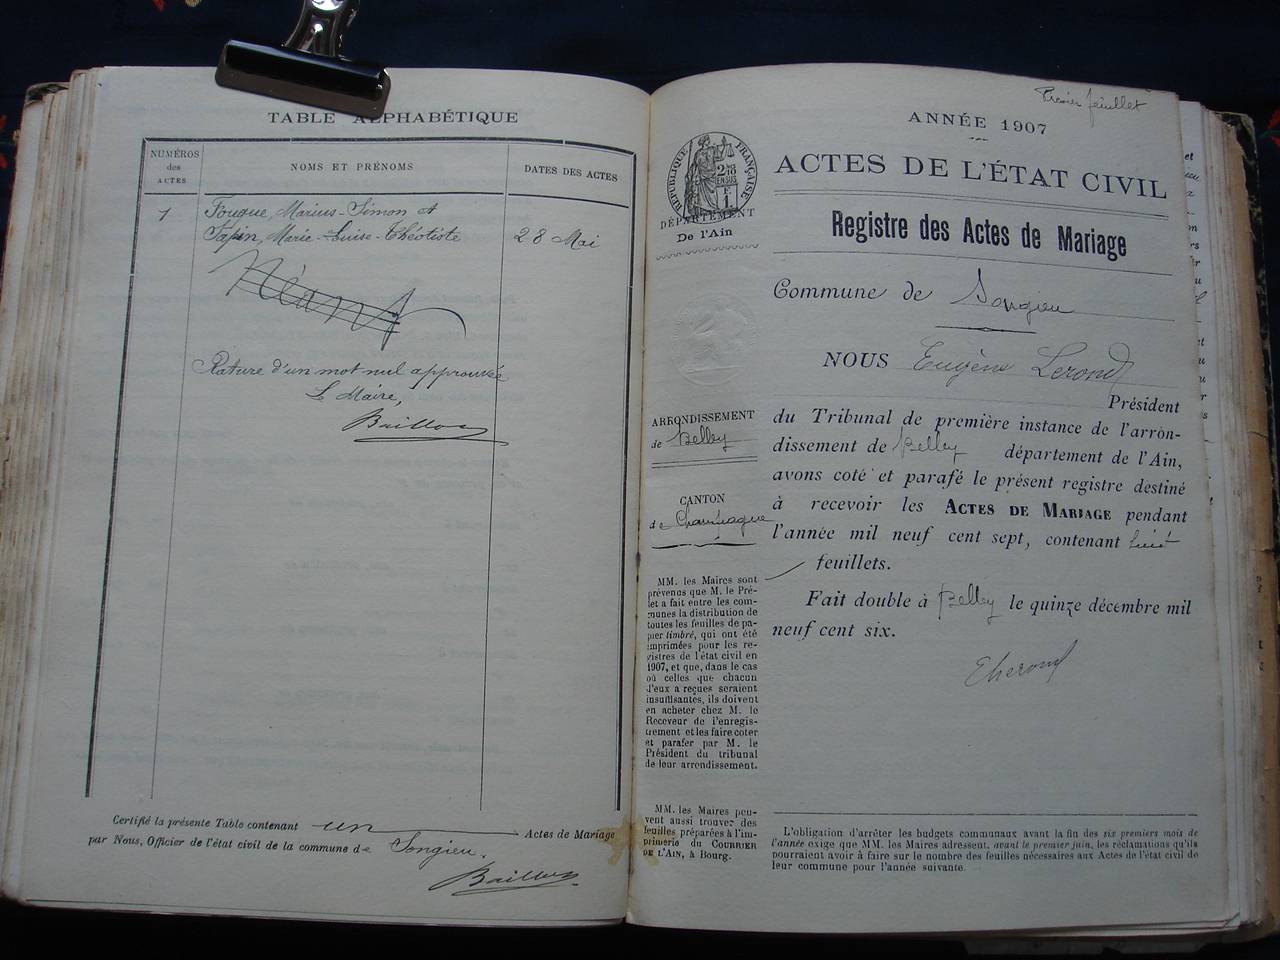 TABLE ALPHABÉTIQUE
NUMÉROS
des
ACTES
NOMS ET PRÉNOMS
DATES DES ACTES
1
Fougue, Marius-Simon et
Tapin, Marie-Luise-Théotiste
28 Mai
Néant
Rature d'un mot nul approuvée
Le Maire,
Certifié la présente Table contenant un Actes de Mariage
par Nous, Officier de l'état civil de la commune de Songieu.
Premier feuillet
ANNÉE 1907
ACTES DE L'ÉTAT CIVIL
RÉPUBLIQUE FRANÇAISE
2/10 EN SUS
F. 1.
DÉPARTEMENT
De l'Ain
Registre des Actes de Mariage
Commune de Songieu
NOUS Eugène
Président
du Tribunal de première instance de l'arron-
dissement de Belley département de l'Ain,
avons coté et parafé le présent registre destiné
à recevoir les ACTES DE MARIAGE pendant
l'année mil neuf cent sept, contenant huit
feuillets.
Fait double à Belley le quinze décembre mil
neuf cent six.
ARRONDISSEMENT
de Belley
CANTON
de Champagne
MM. les Maires sont
prévenus que M. le Pré-
fet a fait entre les com-
munes la distribution de
toutes les feuilles de pa-
pier timbré, qui ont été
imprimées pour les re-
gistres de l'état civil en
1907, et que, dans le cas
où celles que chacun
d'eux a reçues seraient
insuffisantes, ils doivent
en acheter chez M. le
Receveur de l'enregis-
trement et les faire coter
et parafer par M. le
Président du tribunal
de leur arrondissement.
MM. les Maires peu-
vent aussi trouver des
feuilles préparées à l'im-
primerie du COURRIER
DE L'AIN, à Bourg.
L'obligation d'arrêter les budgets communaux avant la fin des six premiers mois de
l'année exige que MM. les Maires adressent, avant le premier juin, les réclamations qu'ils
pourraient avoir à faire sur le nombre des feuilles nécessaires aux Actes de l'état civil de
leur commune pour l'année suivante.